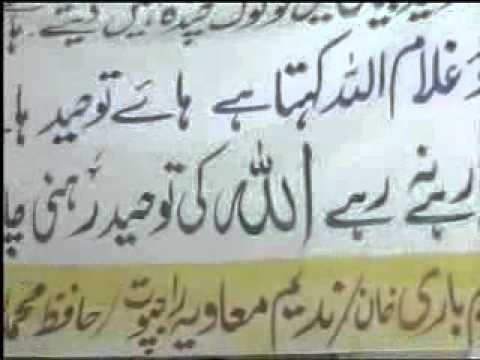 میں لوگ چندہ نہیں دیتے
غلام اللہ کہتا ہے ہائے توحید
رہے نہ رہے اللہ کی توحید رہنی
باری خان/ندیم معاویہ راجپوت/حافظ